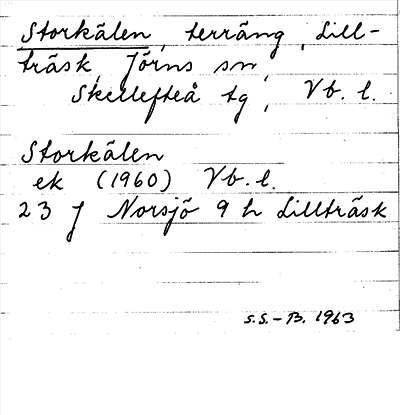 Storkälen, terräng, Lill-
träsk, Jörns sn,
Skellefteå tg, Vb. l.
Storkälen
ek (1960) Vb. l.
23 J Norsjö 9 h Lillträsk
S.S.-B. 1963